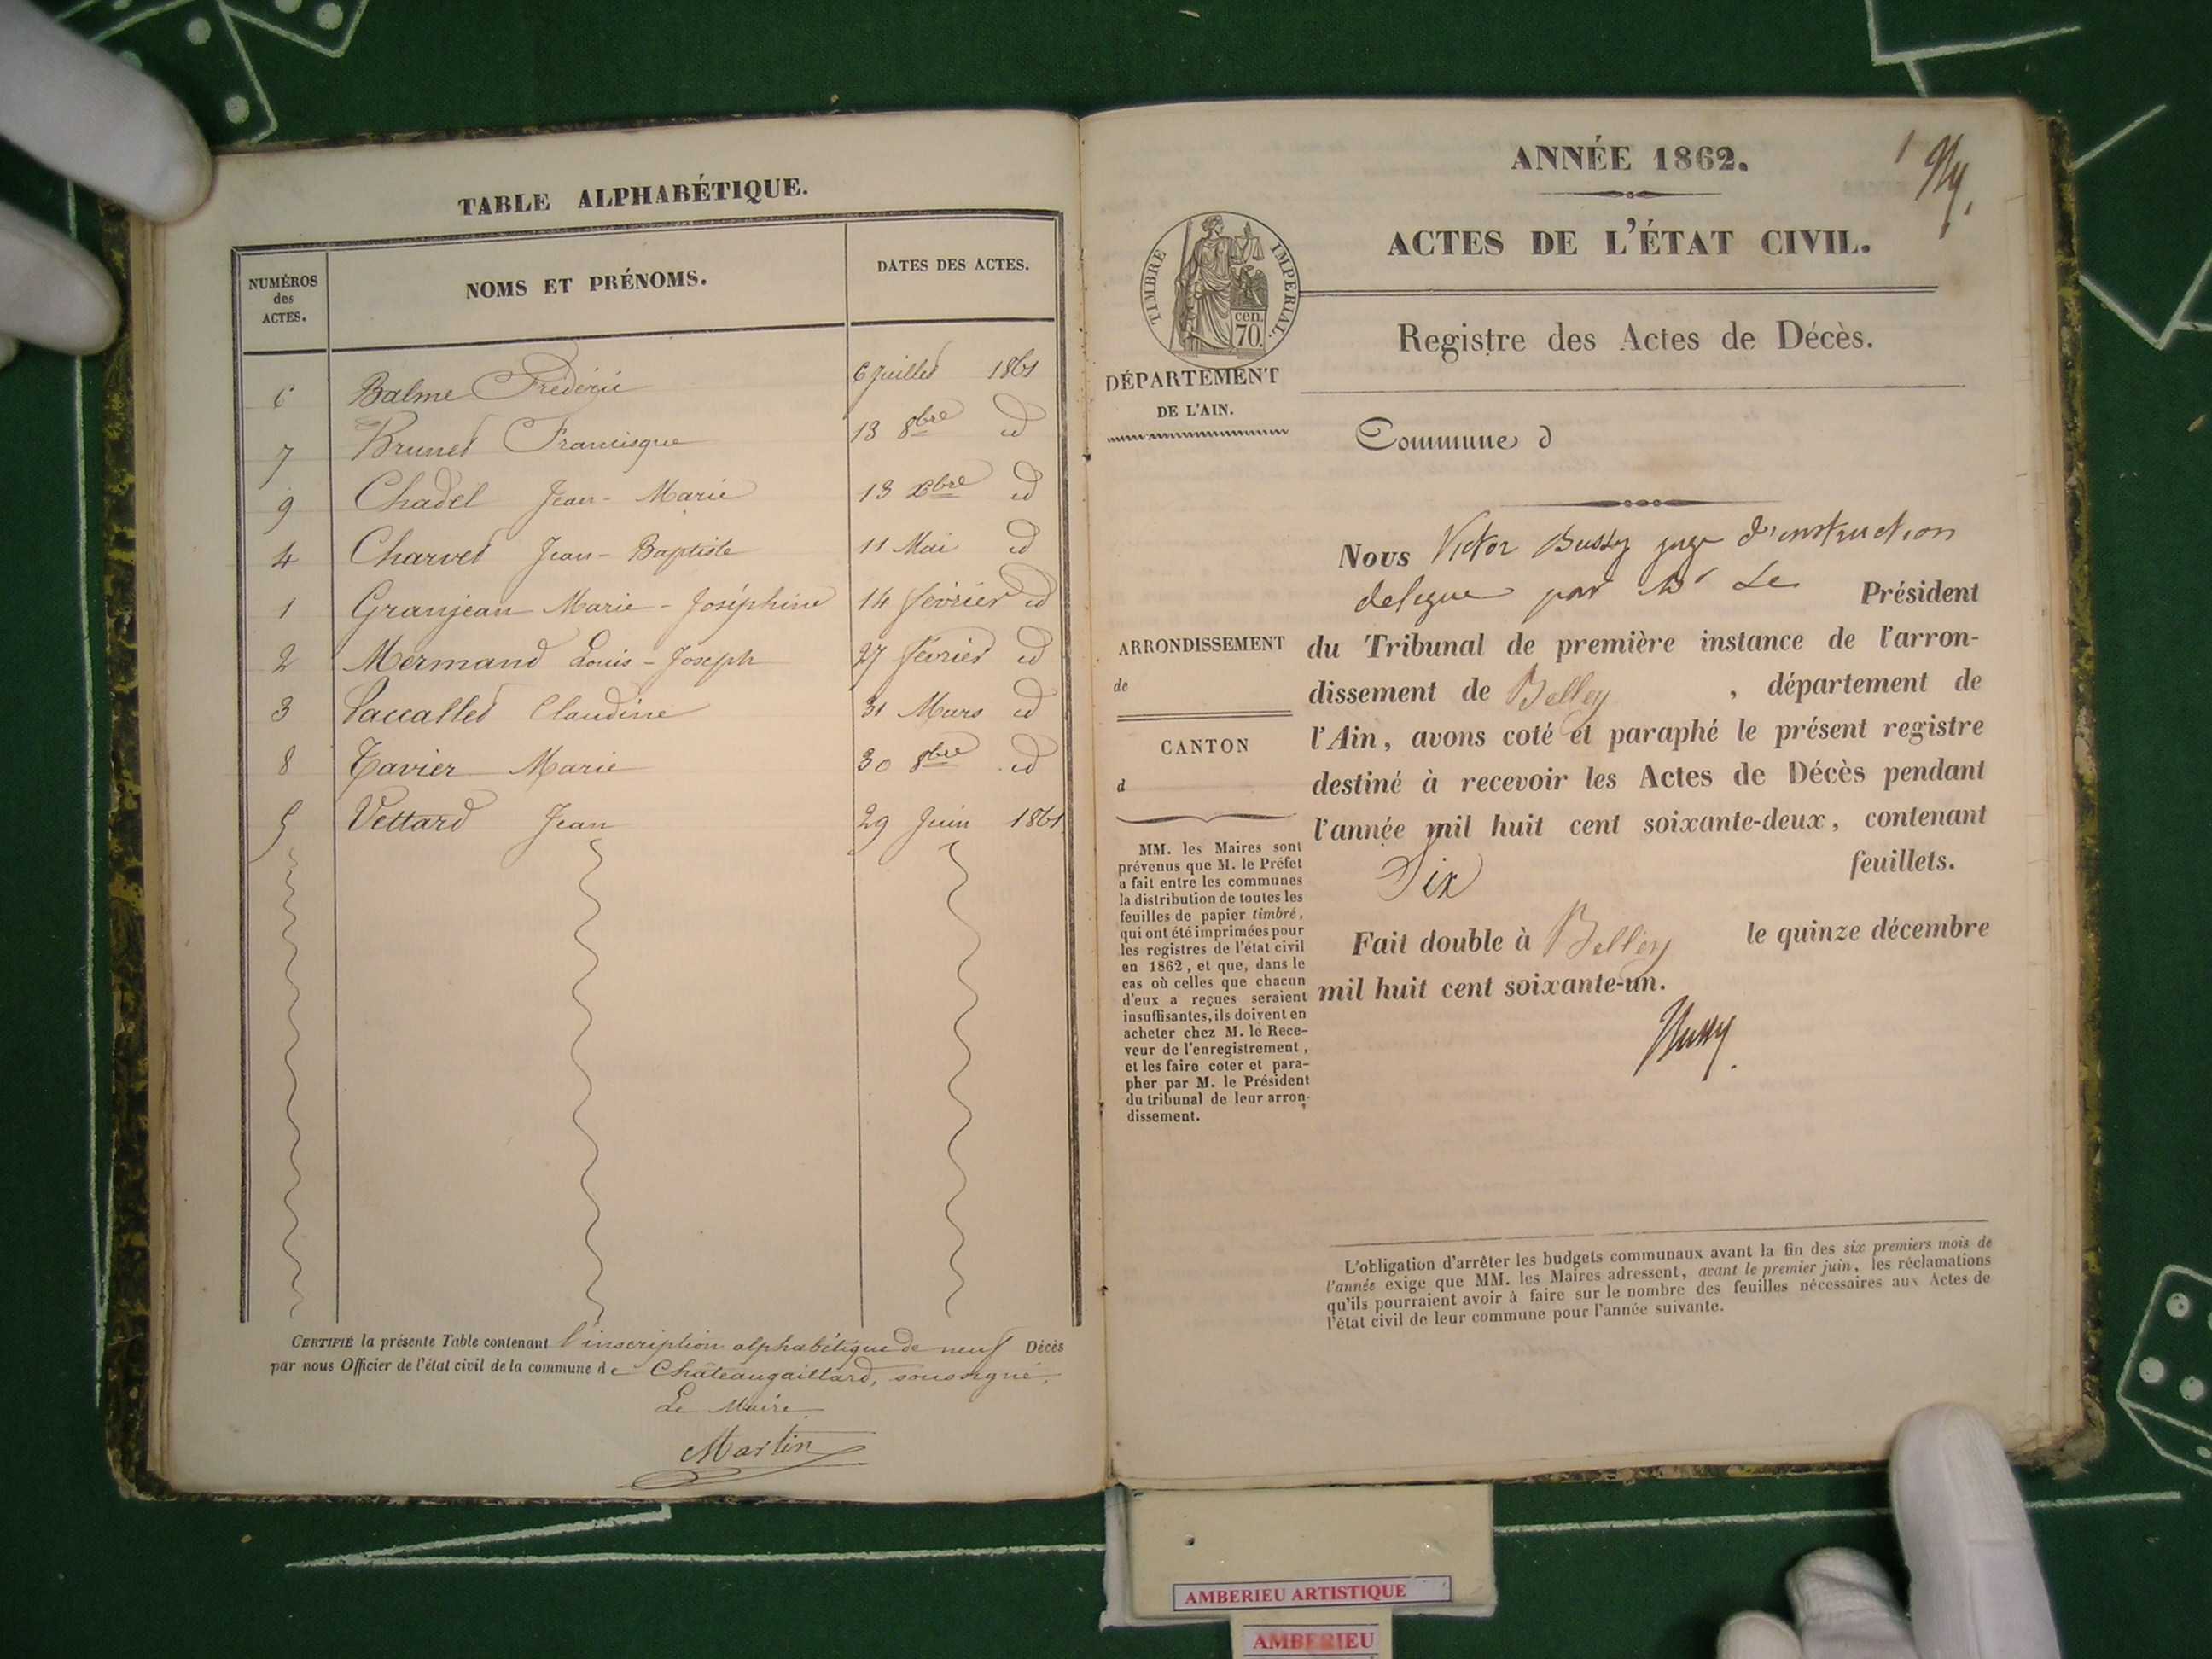 TABLE ALPHABÉTIQUE.
NUMÉROS des ACTES. NOMS ET PRÉNOMS. DATES DES ACTES.
6 Balme Frédéric 6 Juillet 1861
7 Brunet Francisque 13 8bre id
9 Chadel Jean-Marie 13 Xbre id
4 Charvet Jean-Baptiste 11 Mai id
1 Granjean Marie-Joséphine 14 février id
2 Mermand Louis-Joseph 27 février id
3 Paccallet Claudine 31 Mars id
8 Tavier Marie 30 8bre id
5 Vettard Jean 29 Juin 1861
CERTIFIÉ la présente Table contenant l'inscription alphabétique de neuf Décès
par nous Officier de l'état civil de la commune de Châteaugaillard, soussigné.
Le Maire
Martin
1
ANNÉE 1862.
ACTES DE L'ÉTAT CIVIL.
TIMBRE IMPÉRIAL.
cen.
70.
Registre des Actes de Décès.
DÉPARTEMENT
DE L'AIN.
Commune d
Nous Victor Bussy juge d'instruction
delegue par Mr Le Président
du Tribunal de première instance de l'arron-
dissement de Belley , département de
l'Ain, avons coté et paraphé le présent registre
destiné à recevoir les Actes de Décès pendant
l'année mil huit cent soixante-deux, contenant
Six feuillets.
Fait double à Belley le quinze décembre
mil huit cent soixante-un.
Bussy
ARRONDISSEMENT
de
CANTON
d
MM. les Maires sont
prévenus que M. le Préfet
a fait entre les communes
la distribution de toutes les
feuilles de papier timbré,
qui ont été imprimées pour
les registres de l'état civil
en 1862, et que, dans le
cas où celles que chacun
d'eux a reçues seraient
insuffisantes, ils doivent en
acheter chez M. le Rece-
veur de l'enregistrement,
et les faire coter et para-
pher par M. le Président
du tribunal de leur arron-
dissement.
L'obligation d'arrêter les budgets communaux avant la fin des six premiers mois de
l'année exige que MM. les Maires adressent, avant le premier juin, les réclamations
qu'ils pourraient avoir à faire sur le nombre des feuilles nécessaires aux Actes de
l'état civil de leur commune pour l'année suivante.
AMBERIEU ARTISTIQUE
AMBERIEU